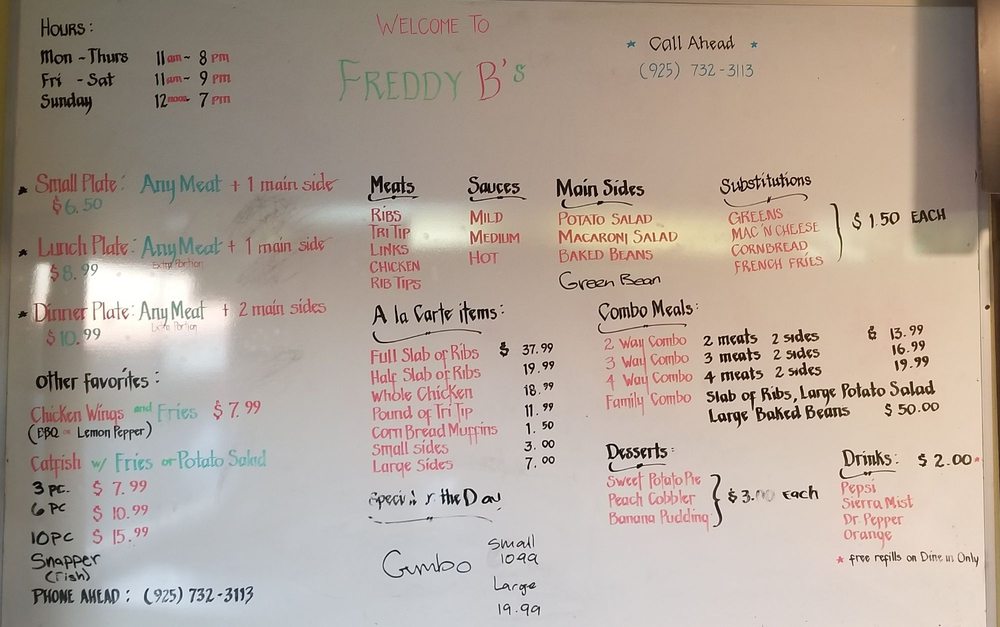 Hours:
Mon - Thurs 11am - 8pm
Fri - Sat 11am - 9pm
Sunday 12noon - 7pm
Welcome To
Freddy B's
* Call Ahead *
(925) 732-3113
* Small Plate: Any Meat + 1 main side
$6.50
* Lunch Plate: Any Meat + 1 main side
Extra Portion
$8.99
* Dinner Plate: Any Meat + 2 main sides
Extra Portion
$10.99
Other favorites:
Chicken Wings and Fries $7.99
(BBQ or Lemon Pepper)
Catfish w/ Fries or Potato Salad
3 pc. $7.99
6 pc $10.99
10 pc $15.99
Snapper
(Fish)
Phone Ahead: (925) 732-3113
Meats
Ribs
Tri Tip
Links
Chicken
Rib Tips
Sauces
Mild
Medium
Hot
Main Sides
Potato Salad
Macaroni Salad
Baked Beans
Green Bean
Substitutions
Greens
Mac 'n Cheese
Cornbread
French Fries
$1.50 each
A la Carte items:
Full Slab of Ribs $37.99
Half Slab of Ribs 19.99
Whole Chicken 18.99
Pound of Tri Tip 11.99
Corn Bread Muffins 1.50
Small sides 3.00
Large Sides 7.00
Special of the Day
Gumbo
Small
10.99
Large
19.99
Combo Meals:
2 Way Combo 2 meats 2 sides $13.99
3 Way Combo 3 meats 2 sides 16.99
4 Way Combo 4 meats 2 sides 19.99
Family Combo Slab of Ribs, Large Potato Salad
Large Baked Beans $50.00
Desserts:
Sweet Potato Pie
Peach Cobbler
Banana Pudding
$3.00 each
Drinks: $2.00*
Pepsi
Sierra Mist
Dr. Pepper
Orange
* free refills on Dine in Only